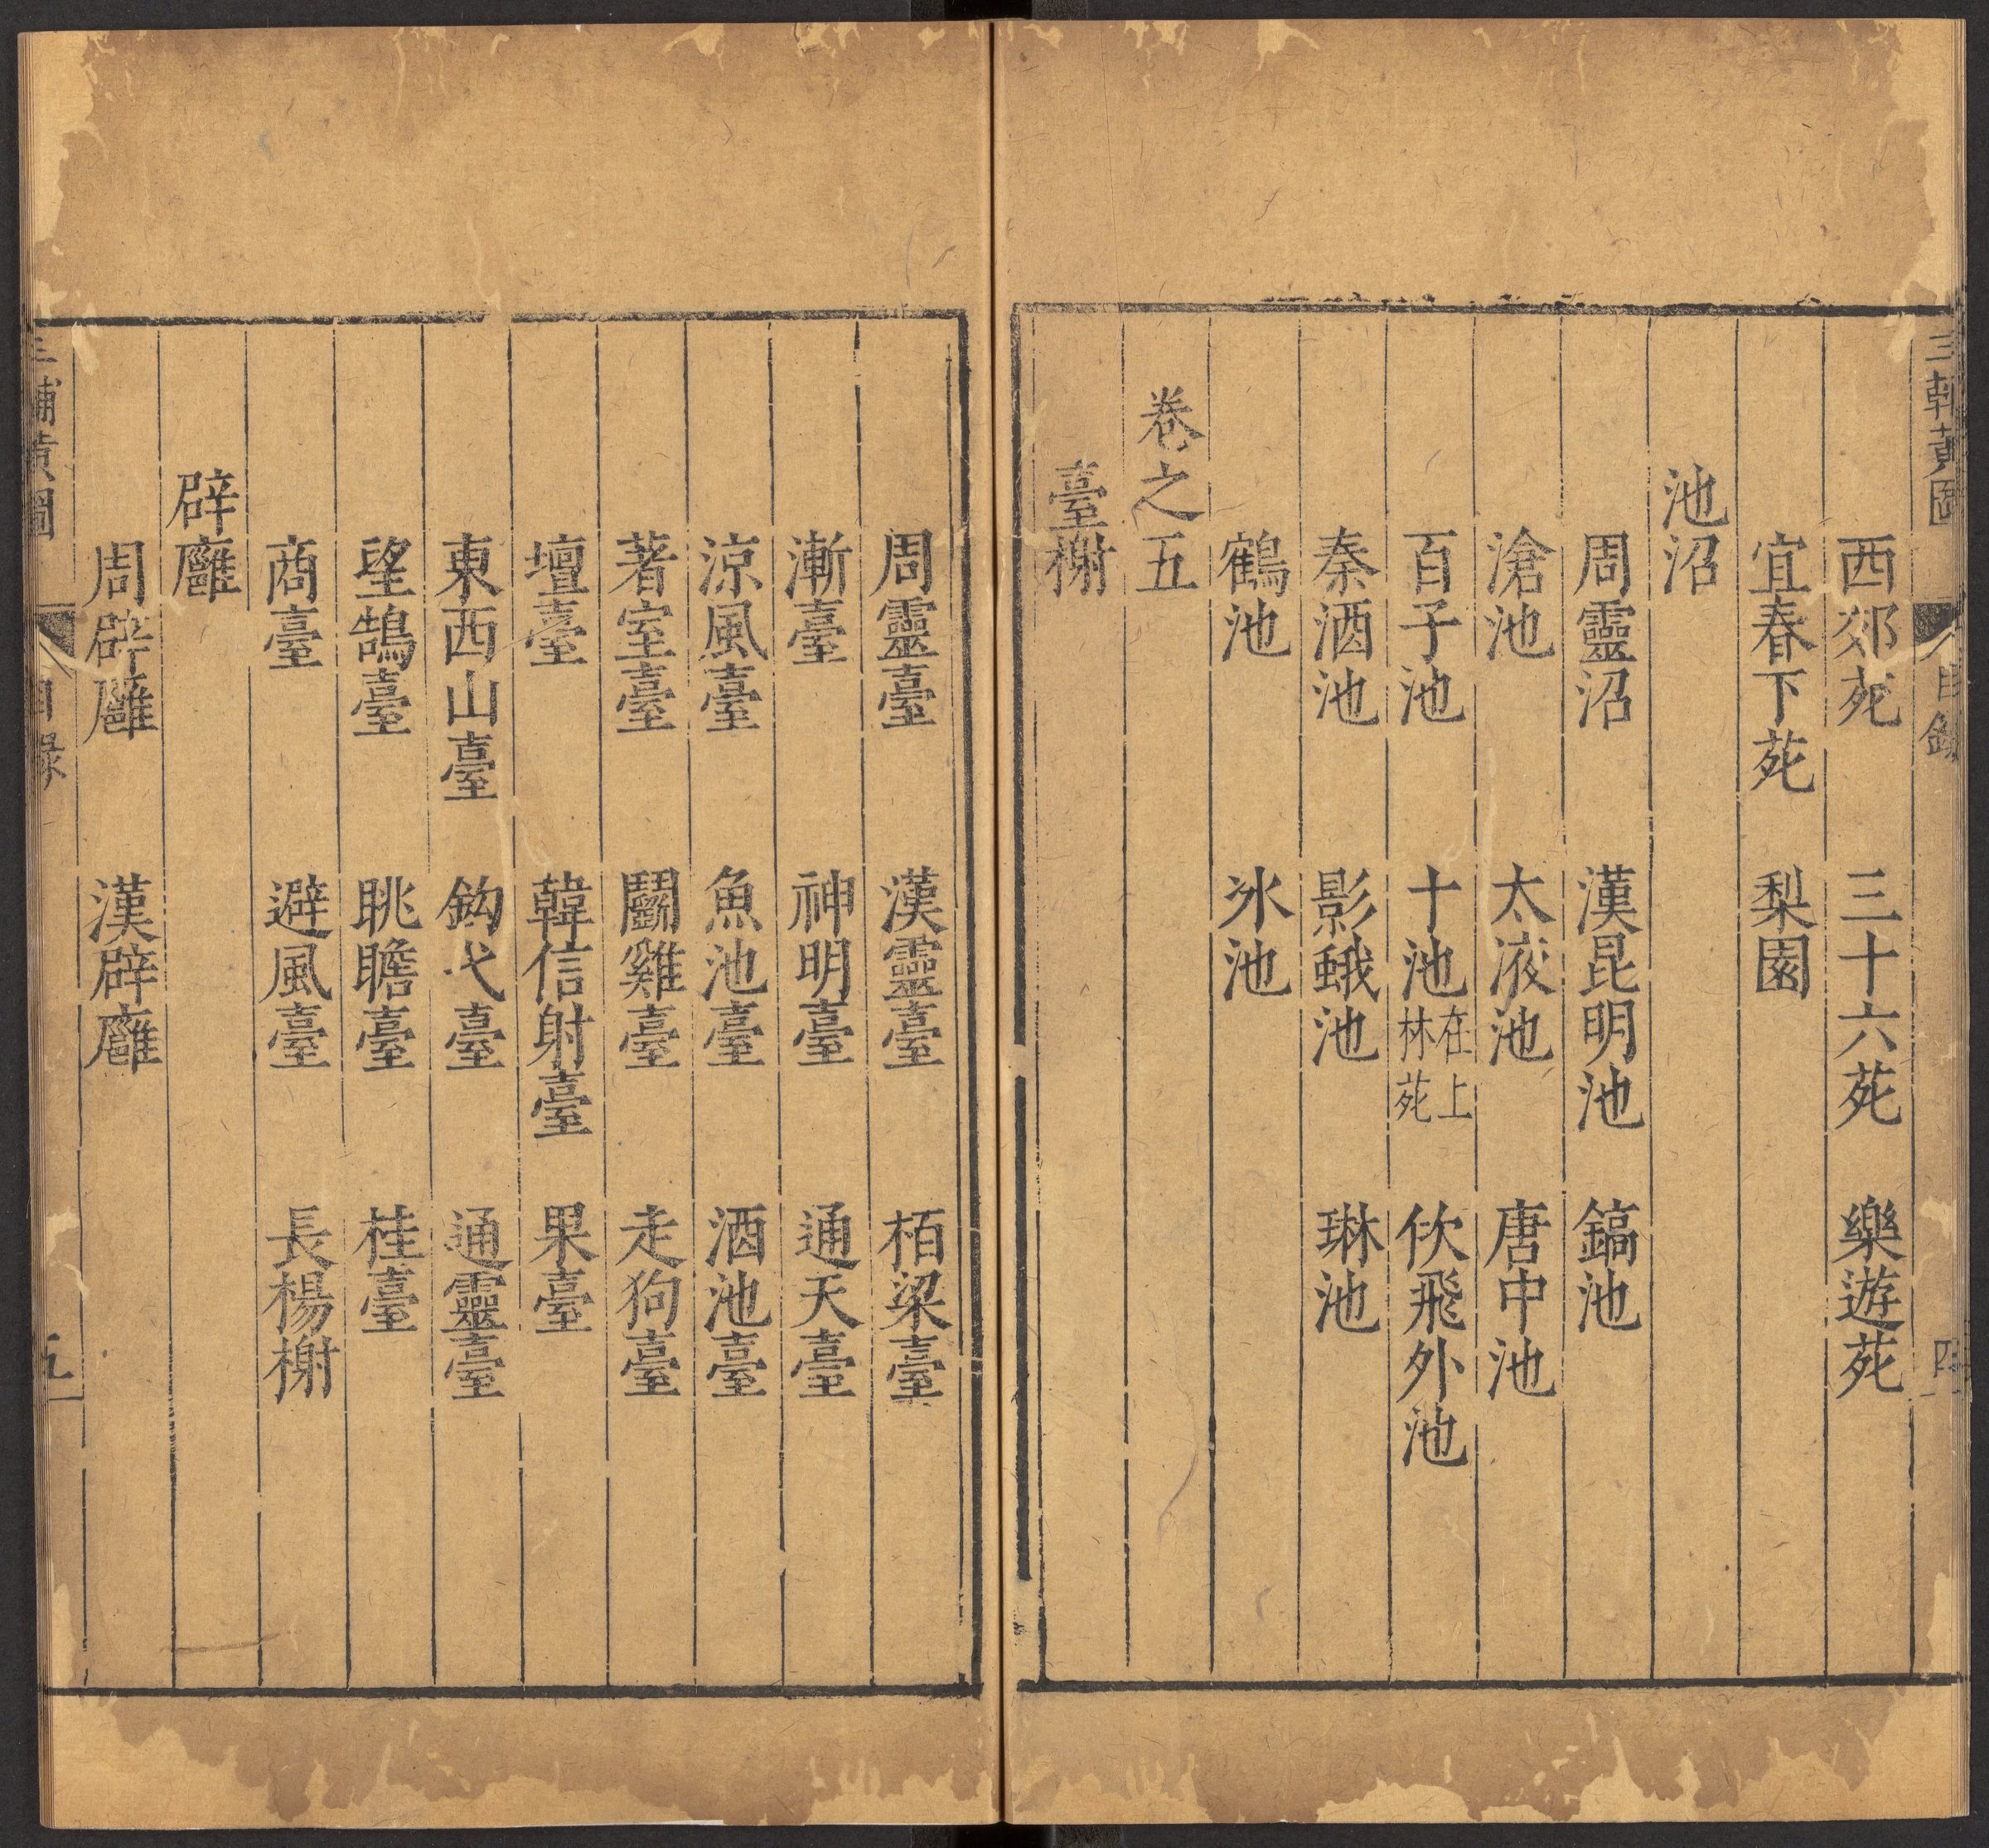 三輔黃圖 目錄 四
西郊苑 三十六苑 樂遊苑
宜春下苑 梨園
池沼
周靈沼 漢昆明池 鎬池
滄池 太液池 唐中池
百子池 十池在上林苑 佽飛外池
秦酒池 影蛾池 琳池
鶴池 氷池
卷之五
臺榭
周靈臺 漢靈臺 栢梁臺
漸臺 神明臺 通天臺
涼風臺 魚池臺 酒池臺
著室臺 鬭雞臺 走狗臺
壇臺 韓信射臺 果臺
東西山臺 鈎弋臺 通靈臺
望鵠臺 眺瞻臺 桂臺
商臺 避風臺 長楊榭
辟廱
周辟廱 漢辟廱
三輔黃圖 目錄 五